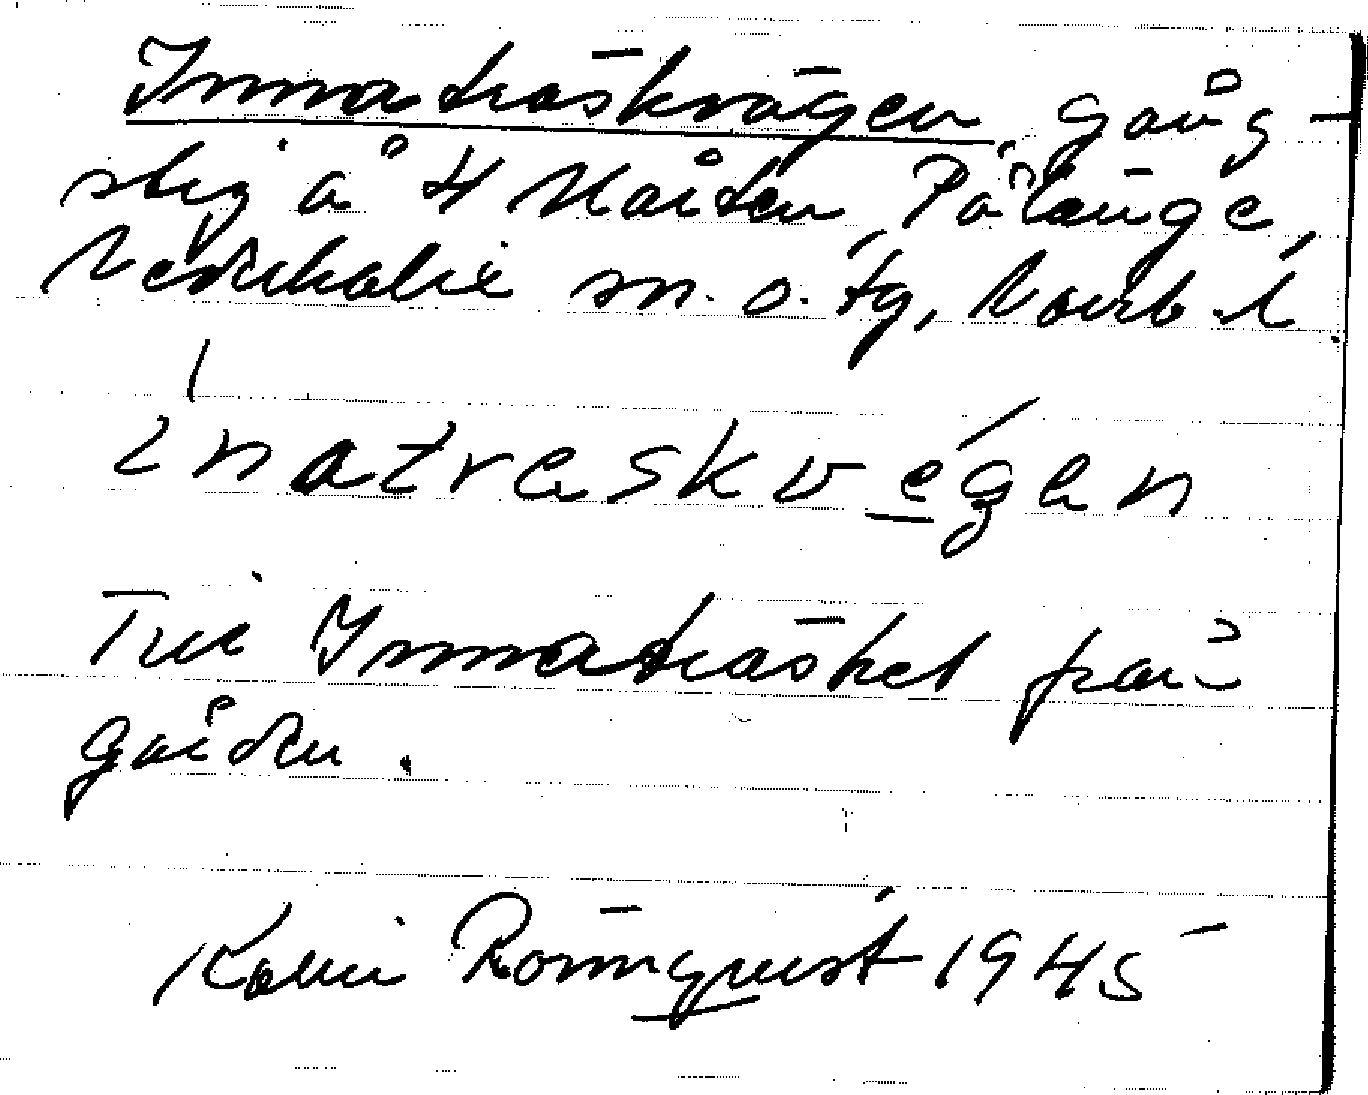 Innaträskvägen, gång-
stig å 4 Mårten, Pålänge,
Nederkalix sn. o. tg, Norrb. l.
inatreskvégen
Till Innaträsket från
gården.
Karin Rönnquist 1945